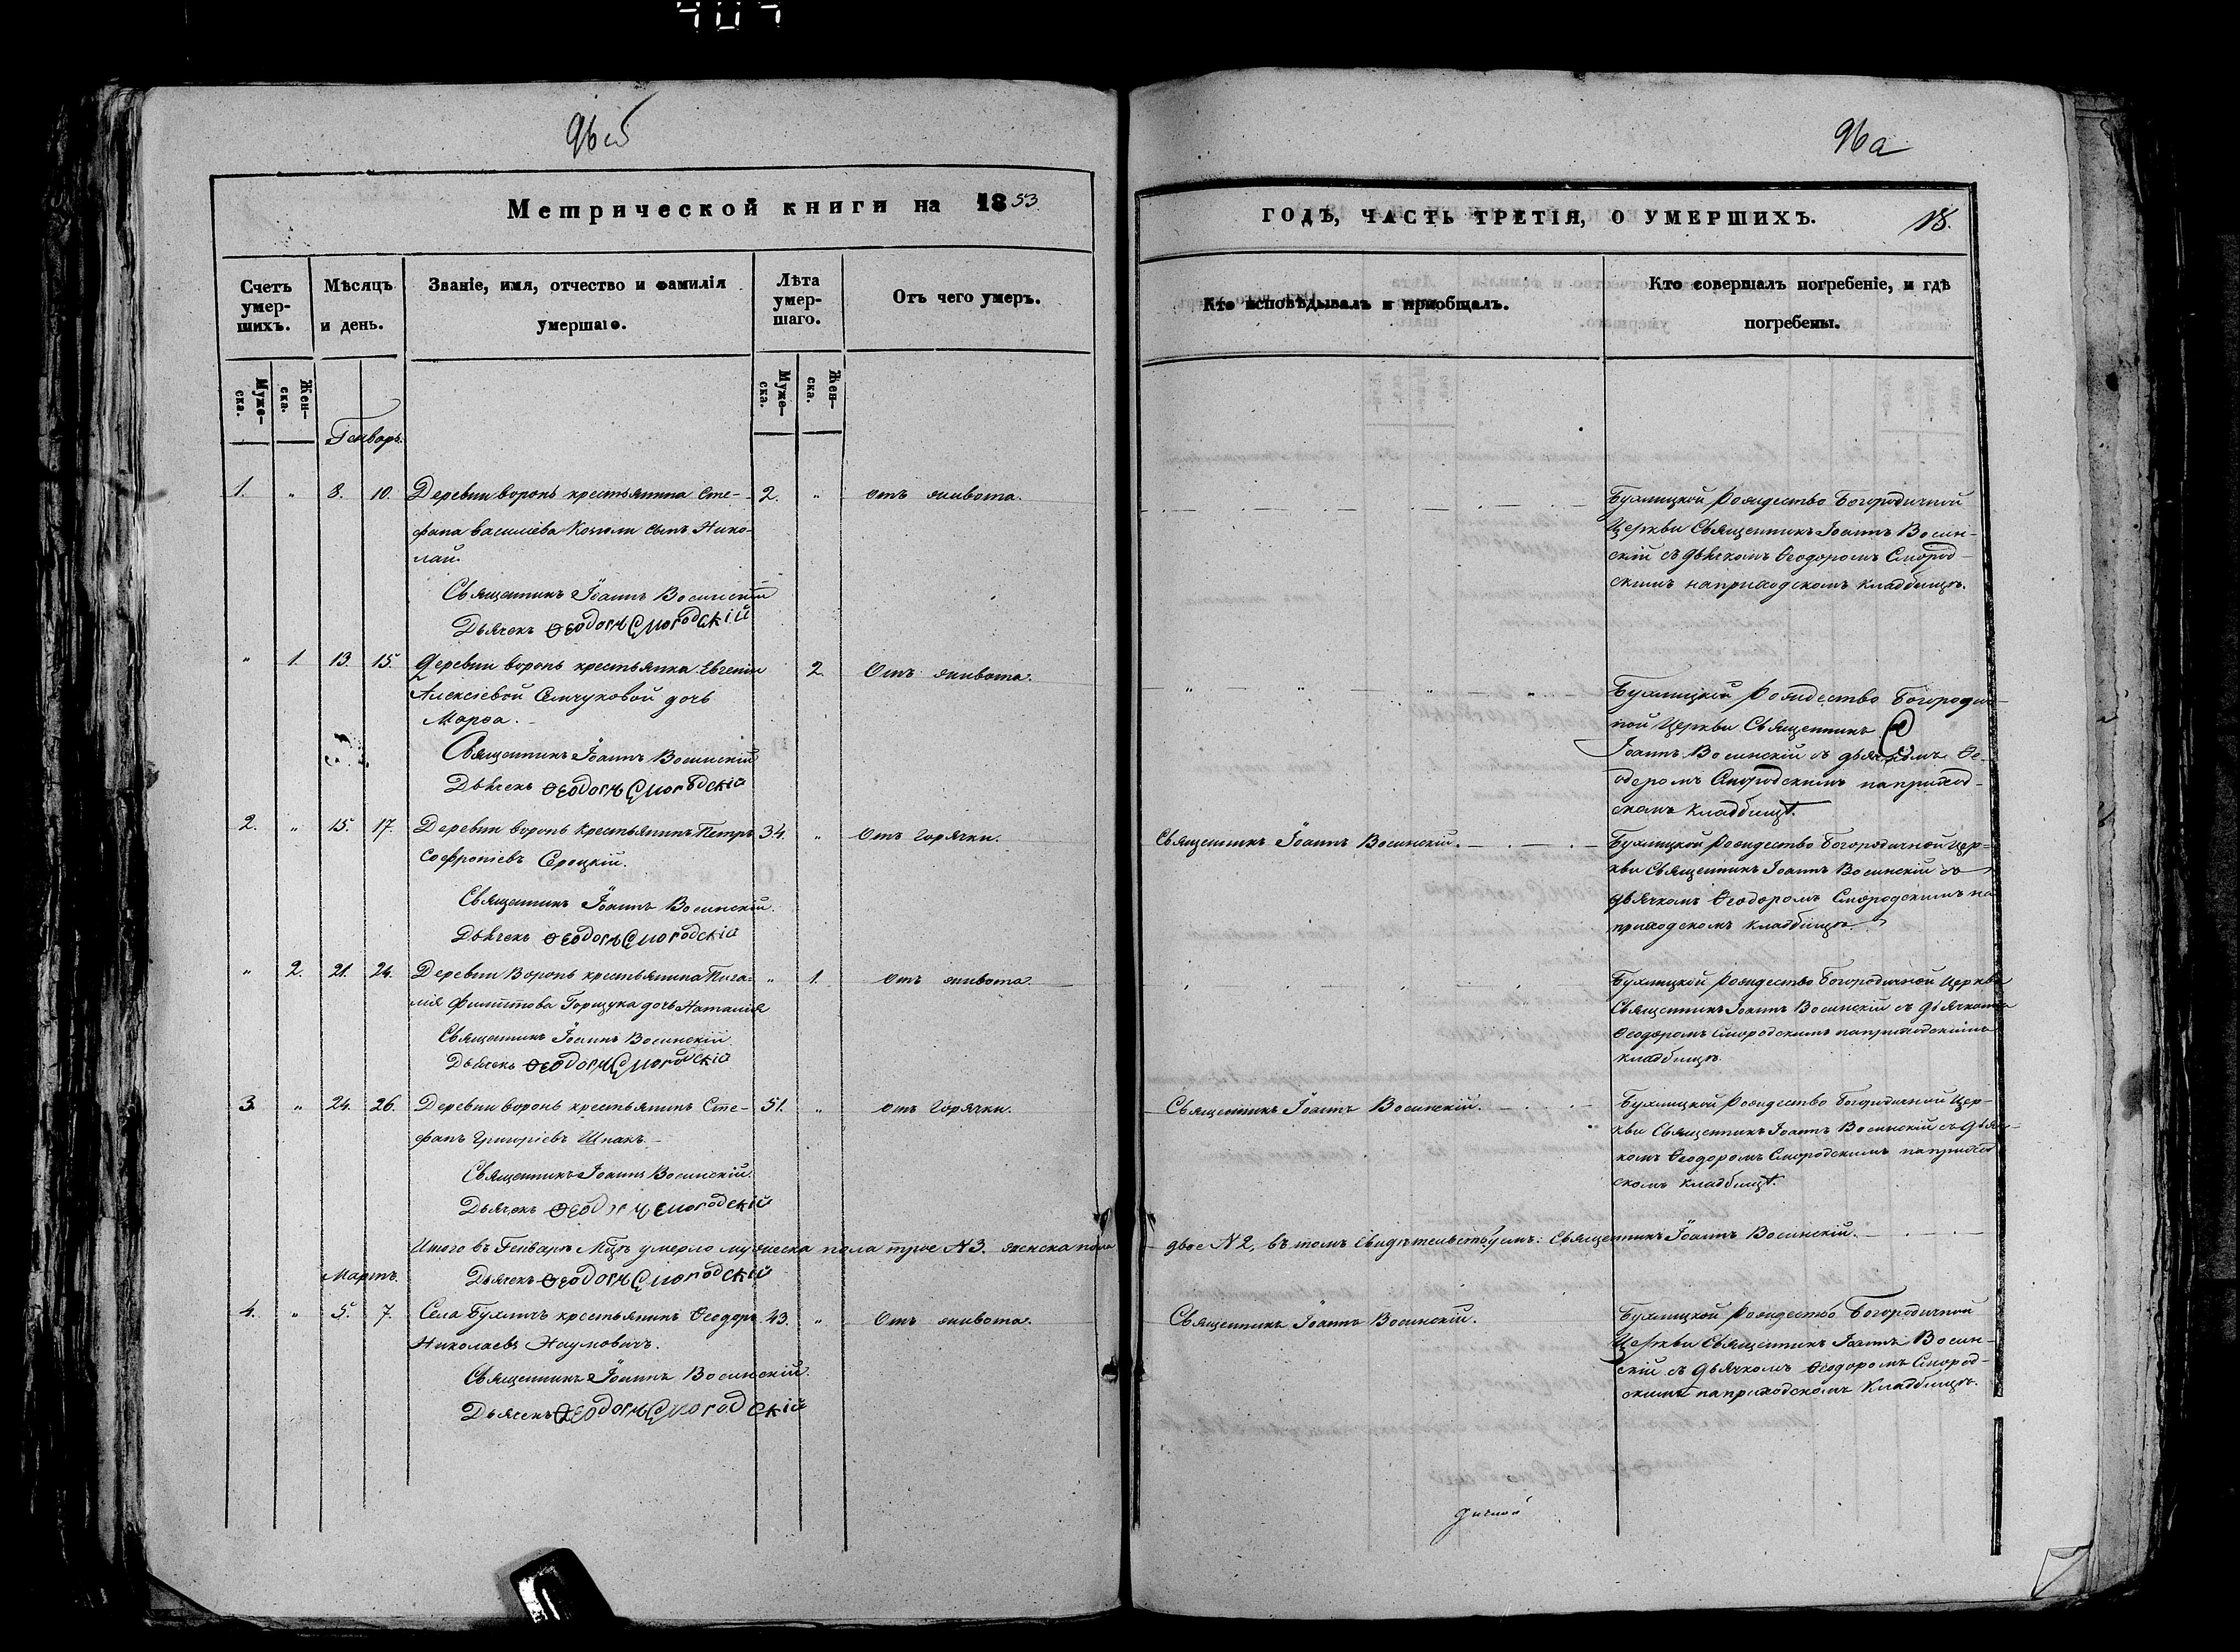 407
96 об
96 а
Метрической книги на 1853
годъ, часть третія, о умершихъ.
18.
Счетъ умер-
шихъ.
Мѣсяцъ
и день.
Званіе, имя, отчество и фамилія
умершаго.
Лѣта
умер-
шаго.
Отъ чего умеръ.
Кто исповѣдывалъ и приобщалъ.
Кто совершалъ погребеніе, и гдѣ
погребены.
Муже-
ска.
Жен-
ска.
Муже-
ска.
Жен-
ска.
Генворь.
1. " 8. 10. Деревни Воронь крестьянина Сте- 2. " отъ живота.
фана Василіева сынъ Нико-
лай.
Священникъ Іоаннъ Восинскій
Дьячекъ Ѳеодоръ Смородскій
Бухлицкой Рождество Богородичной
Церкви Священникъ Іоаннъ Восин-
скій съ дьячкомъ Ѳеодоромъ Смород-
скимъ наприходскомъ кладбищѣ.
" 1. 13. 15. Деревни Воронь крестьянка Евгеніи 2. Отъ живота.
Алексіевой дочь
Марѳа.
Священникъ Іоаннъ Восинскій
Дьячекъ Ѳеодоръ Смородскій
Бухлицкой Рождество Богородич-
ной Церкви Священникъ
Іоаннъ Восинскій съ дьячкомъ Ѳе-
одоромъ Смородскимъ наприход-
скомъ кладбищѣ.
2. " 15. 17. Деревни Воронь Крестьянинъ Петръ 34. " Отъ горячки.
Софроніевъ Сроцкій.
Священникъ Іоаннъ Восинскій.
Дьячекъ Ѳеодоръ Смородскій
Священникъ Іоаннъ Восинскій.
Бухлицкой Рождество Богородичной Цер-
кви Священникъ Іоаннъ Восинскій съ
дьячкомъ Ѳеодоромъ Смородскимъ на
приходскомъ кладбищѣ.
" 2. 21. 24. Деревни Воронь крестьянина " 1. отъ живота.
Филиппова Горщука дочь Наталія
Священникъ Іоаннъ Восинскій
Дьячекъ Ѳеодоръ Смородскій
Бухлицкой Рождество Богородичной Церкви
Священникъ Іоаннъ Восинскій съ дьячкомъ
Ѳеодоромъ Смородскимъ наприходскимъ
кладбищѣ.
3. " 24. 26. Деревни Воронь крестьянинъ Сте- 51. " отъ горячки.
фанъ Григоріевъ Шпакъ.
Священникъ Іоаннъ Восинскій.
Дьячекъ Ѳеодоръ Смородскій
Священникъ Іоаннъ Восинскій.
Бухлицкой Рождество Богородичной Цер-
кви Священникъ Іоаннъ Восинскій съ дьяч-
комъ Ѳеодоромъ Смородскимъ наприход
скомъ кладбищѣ.
Итого въ Генварѣ Мцѣ умерло мужеска пола трое №3. женска пола двое №2, въ томъ свидѣтельствуемъ: Священникъ Іоаннъ Восинскій.
Дьячекъ Ѳеодоръ Смородскій
Мартъ.
4. " 5. 7. Села Бухличъ крестьянинъ Ѳеодоръ 43. " Отъ живота.
Николаевъ Наумовичъ.
Священникъ Іоаннъ Восинскій.
Дьячекъ Ѳеодоръ Смородскій
Священникъ Іоаннъ Восинскій.
Бухлицкой Рождество Богородичной
Церкви Священникъ Іоаннъ Восин-
скій съ дьячкомъ Ѳеодоромъ Смород-
скимъ наприходскомъ кладбищѣ.
дичной